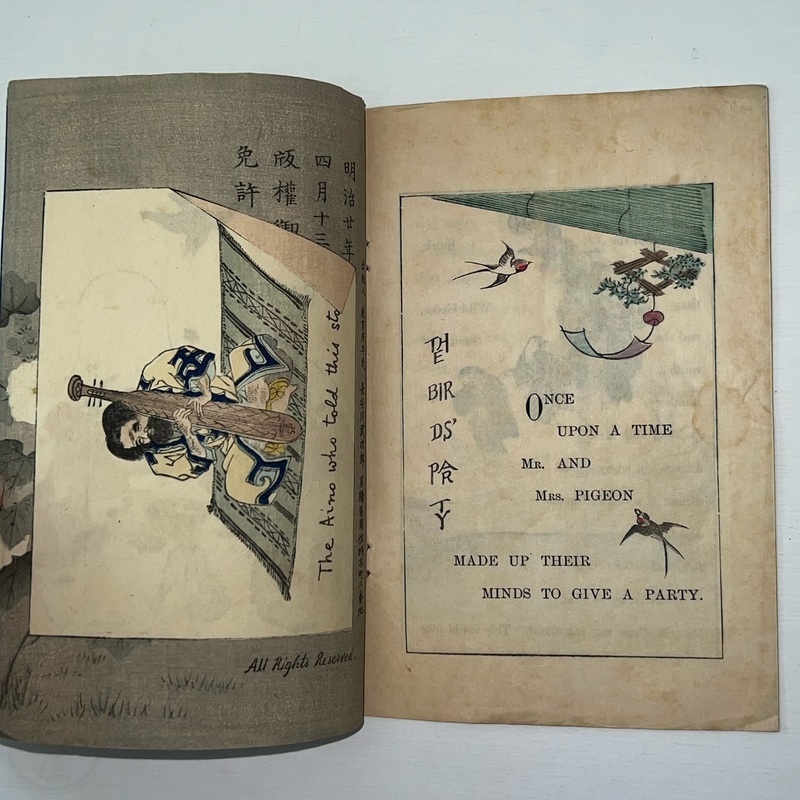 明治廿年
四月十三
版權御
免許
長谷川武次郎 京橋區南佐柄木町二番地
The Aino who told this sto
All Rights Reserved.
THE
BIR
DS'
PAR
TY
ONCE
UPON A TIME
MR. AND
MRS. PIGEON
MADE UP THEIR
MINDS TO GIVE A PARTY.